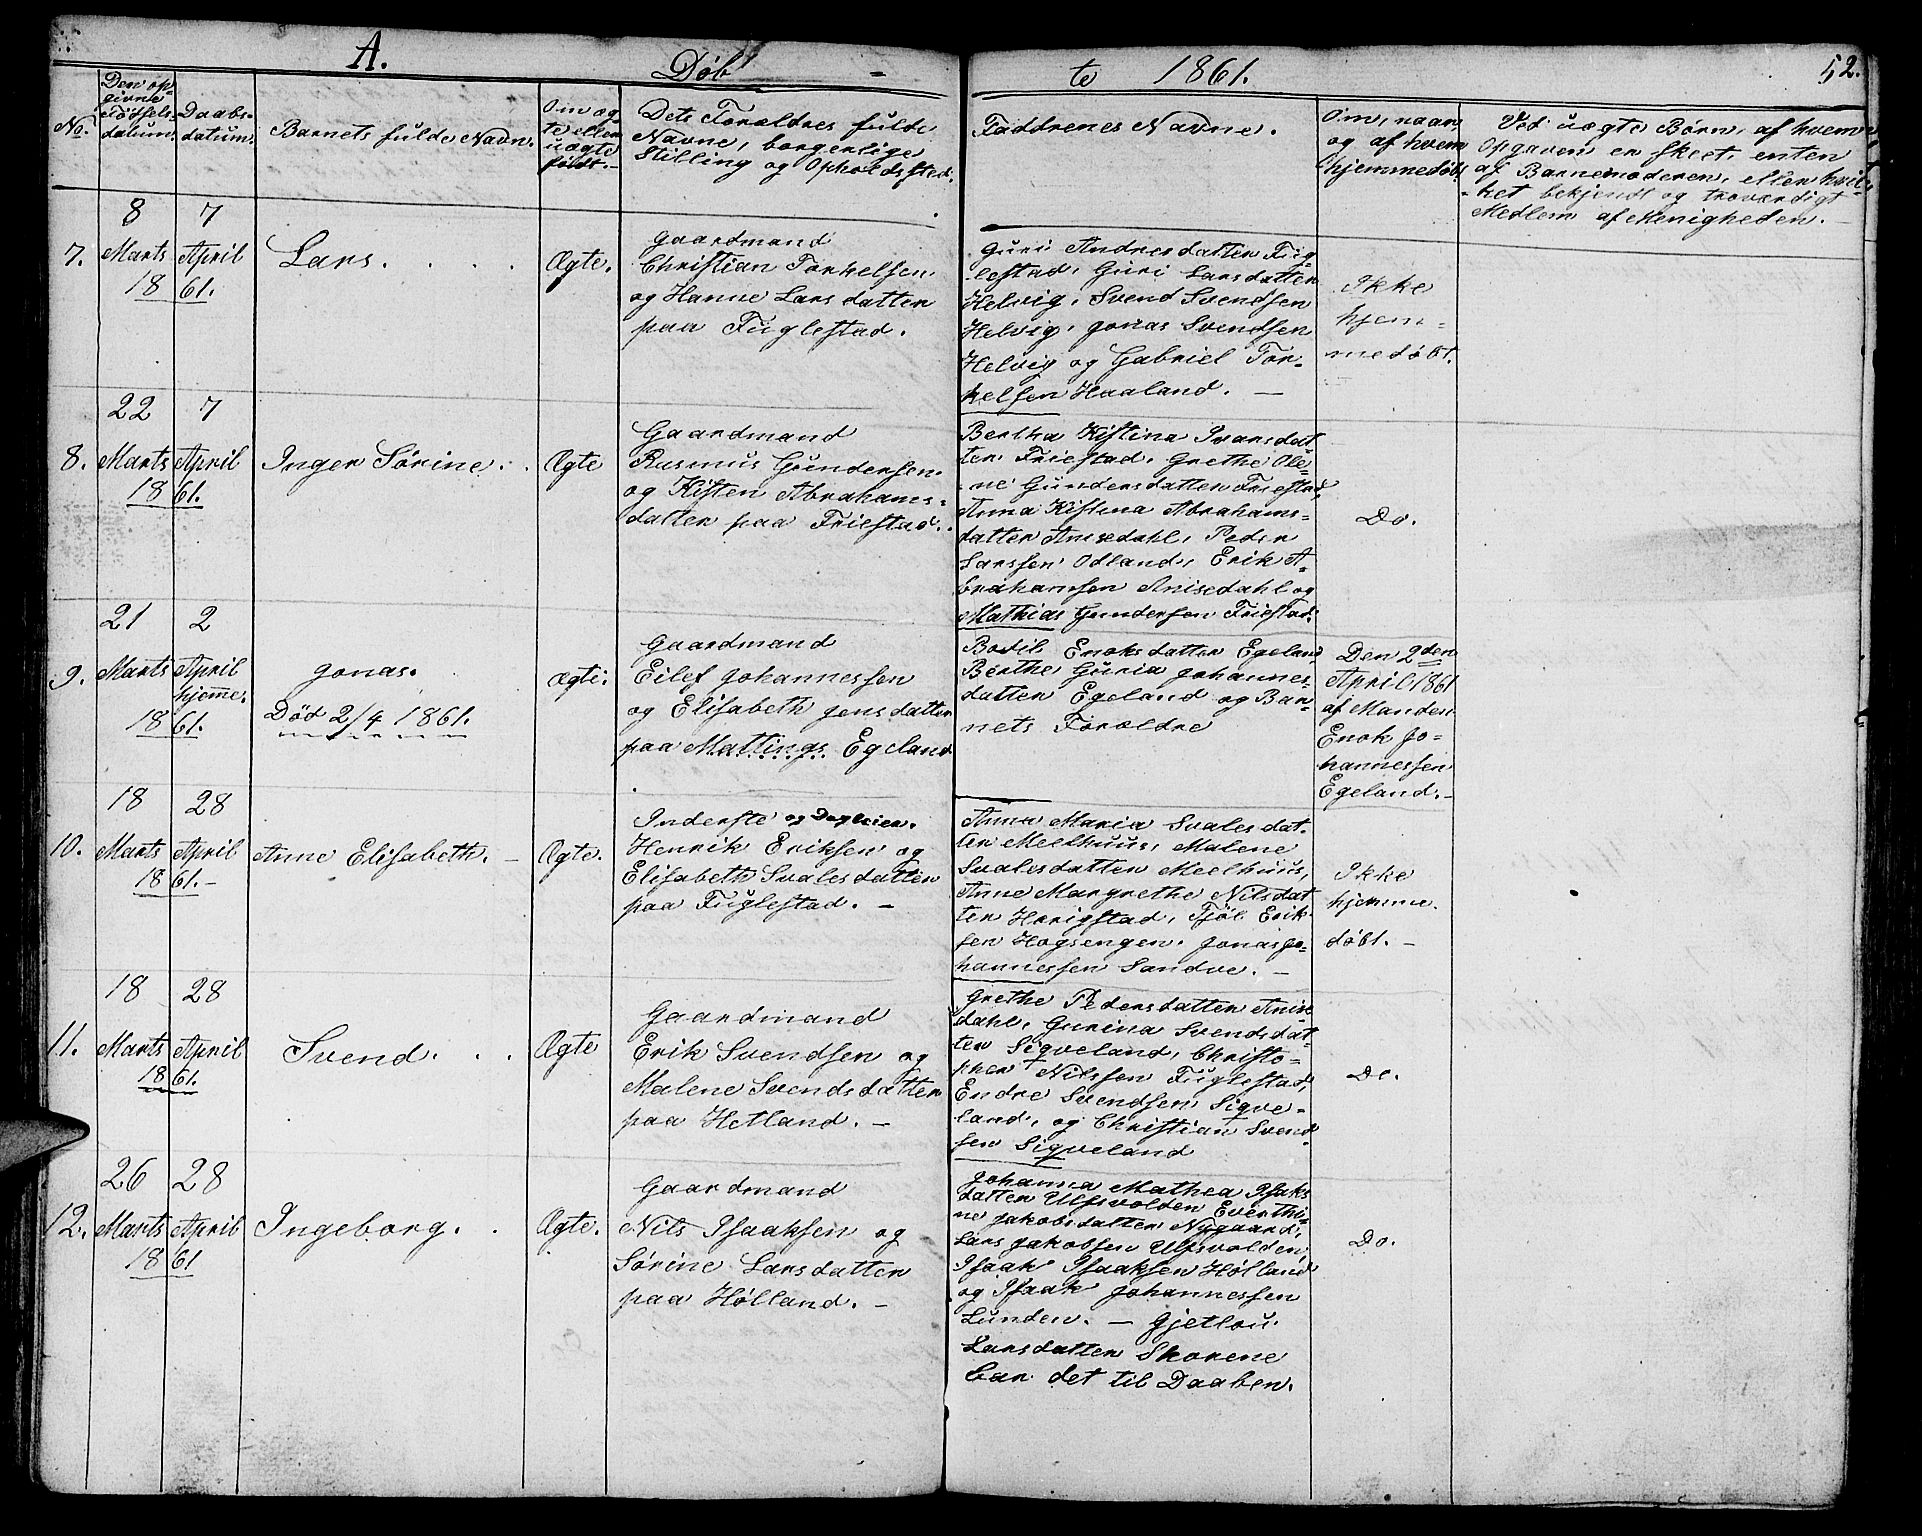 A.
Døb-
te 1861.
52.
No.
Den op-
givne
Fødsels-
datum.
Daabs-
datum.
Barnets fulde Navn.
Om æg-
te eller
uægte
født.-
Dets Forældres fulde
Navne, borgerlige
Stilling og Opholdssted.
Faddrenes Navne.
Om, naar,
og af hvem
hjemmedøbt.
Ved uægte Børn, af hvem
Opgaven er skeet, enten
af Barnemoderen, eller hvil-
ket bekjendt og troværdigt
Medlem af Menigheden.
7.
8
Marts
1861.
7
April
Lars. . . .
Ægte.
Gaardmand
Christian Torkelsen
og Hanne Larsdatter
paa Fuglestad.
Guri Andresdatter Fug-
lestad, Guri Larsdatter
Helvig, Svend Svendsen
Helvig, Jonas Svendsen
Helvig og Gabriel Tor-
kelsen Haaland. —
Ikke
hjem-
medøbt.
8.
22
Marts
1861.
7
April
Inger Sørine. .
Ægte
Gaardmand
Rasmus Gundersen
og Kisten Abrahams-
datter paa Friestad.
Bertha Kistina Ivarsdat-
ter Friestad, Grethe Ole-
ne Gundersdatter Friestad,
Anna Kistina Abrahams-
datter Anisedahl, Peder
Larssen Odland, Erik A-
brahamsen Anisedahl og
Mathias Gundersen Friestad.
Do.
9.
21
Marts
1861.
2
April
hjemme.
Jonas.
Død 2/4 1861.
Ægte.
Gaardmand
Eilef Johannessen
og Elisabeth Jensdatter
paa Mattings Egeland
Bodil Enoksdatter Egeland,
Berthe Guria Johannes-
datter Egeland og Bar-
nets Forældre
Den 2den
April 1861
af Manden
Enok Jo-
hannessen
Egeland.-
10.
18
Marts
1861.-
28
April
Anne Elisabeth. —
Ægte.
Inderste og Dagleier.
Henrik Eriksen og
Elisabeth Svalesdatter
paa Fuglestad. —
Anna Maria Svalesdat-
ter Meelhuus, Malene
Svalesdatter Meelhuus,
Anne Margrethe Nilsdat-
ter Horigstad, Tjøl Erik-
sen Hogsengen, Jonas Jo-
hannessen Sandve. —
Ikke
hjemme-
døbt. —
11.
18
Marts
1861.
28
April
Svend. . .
Ægte
Gaardmand
Erik Svendsen og
Malene Svendsdatter
paa Hetland. —
Grethe Pedersdatter Anise-
dahl, Gurina Svendsdat-
ter Siqveland, Christo-
pher Nilssen Fuglestad,
Endre Svendsen Siqve-
land, og Christian Svend-
sen Siqveland
Do.
12.
26
Marts
1861
28
April
Ingeborg. .
Ægte.
Gaardmand
Nils Isaaksen og
Sørine Larsdatter
paa Hølland. —
Johanna Mathea Isaks-
datter Ulfsvolden Everthi-
ne Jakobsdatter Nygaard,
Lars Jakobsen Ulfsvolden,
Isaak Isaaksen Hølland
og Isaak Johannessen
Lunden. — Gjetlou
Larsdatter Skorene
bar det til Daaben.
Do.